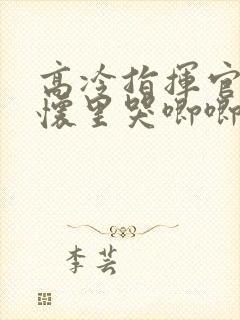 高冷指揮官
懷里哭唧唧
李芸